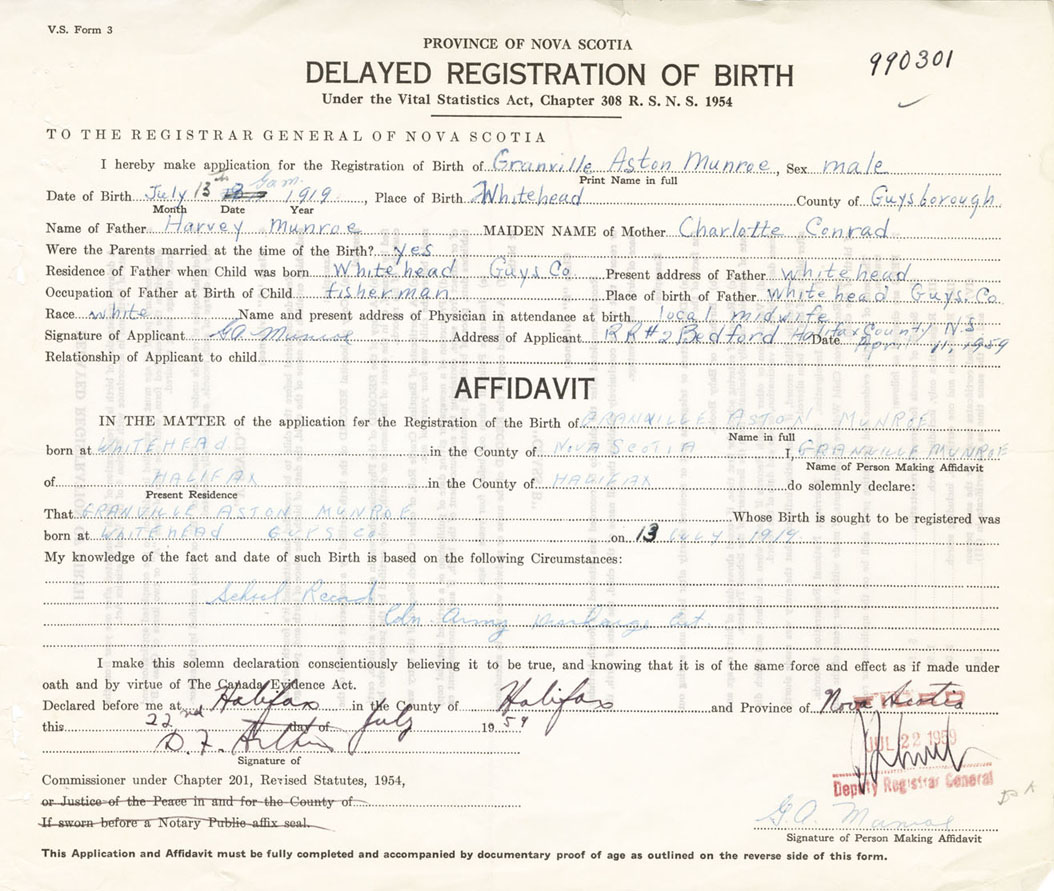 V.S. Form 3
PROVINCE OF NOVA SCOTIA
990301
DELAYED REGISTRATION OF BIRTH
Under the Vital Statistics Act, Chapter 308 R. S. N. S. 1954
TO THE REGISTRAR GENERAL OF NOVA SCOTIA
I hereby make application for the Registration of Birth of Granville Aston Munroe, Sex male
Print Name in full
Date of Birth July 13 1919, Place of Birth Whitehead County of Guysborough
Month Date Year
Name of Father Harvey Munroe MAIDEN NAME of Mother Charlotte Conrad
Were the Parents married at the time of the Birth? yes
Residence of Father when Child was born Whitehead Guys Co Present address of Father whitehead
Occupation of Father at Birth of Child fisherman Place of birth of Father whitehead Guys. Co.
Race white Name and present address of Physician in attendance at birth local midwife
Signature of Applicant GA Munroe Address of Applicant RR#2 Bedford Halifax County N.S Date April 11, 1959
Relationship of Applicant to child
AFFIDAVIT
IN THE MATTER of the application for the Registration of the Birth of GRANVILLE ASTON MUNROE
Name in full
born at WHITEHEAD in the County of NOVA SCOTIA I, GRANVILLE MUNROE
Name of Person Making Affidavit
of HALIFAX in the County of HALIFAX do solemnly declare:
Present Residence
That GRANVILLE ASTON MUNROE Whose Birth is sought to be registered was
born at WHITEHEAD GUYS CO on 13 July 1919
My knowledge of the fact and date of such Birth is based on the following Circumstances:
School Record
Cdn Army Discharge Cert.
I make this solemn declaration conscientiously believing it to be true, and knowing that it is of the same force and effect as if made under
oath and by virtue of The Canada Evidence Act.
Declared before me at Halifax in the County of Halifax and Province of Nova Scotia
this 22nd day of July 1959
D. F.
JUL 22 1959
Signature of
Deputy Registrar General
Commissioner under Chapter 201, Revised Statutes, 1954,
or Justice of the Peace in and for the County of
If sworn before a Notary Public affix seal.
G.A. Munroe
Signature of Person Making Affidavit
This Application and Affidavit must be fully completed and accompanied by documentary proof of age as outlined on the reverse side of this form.